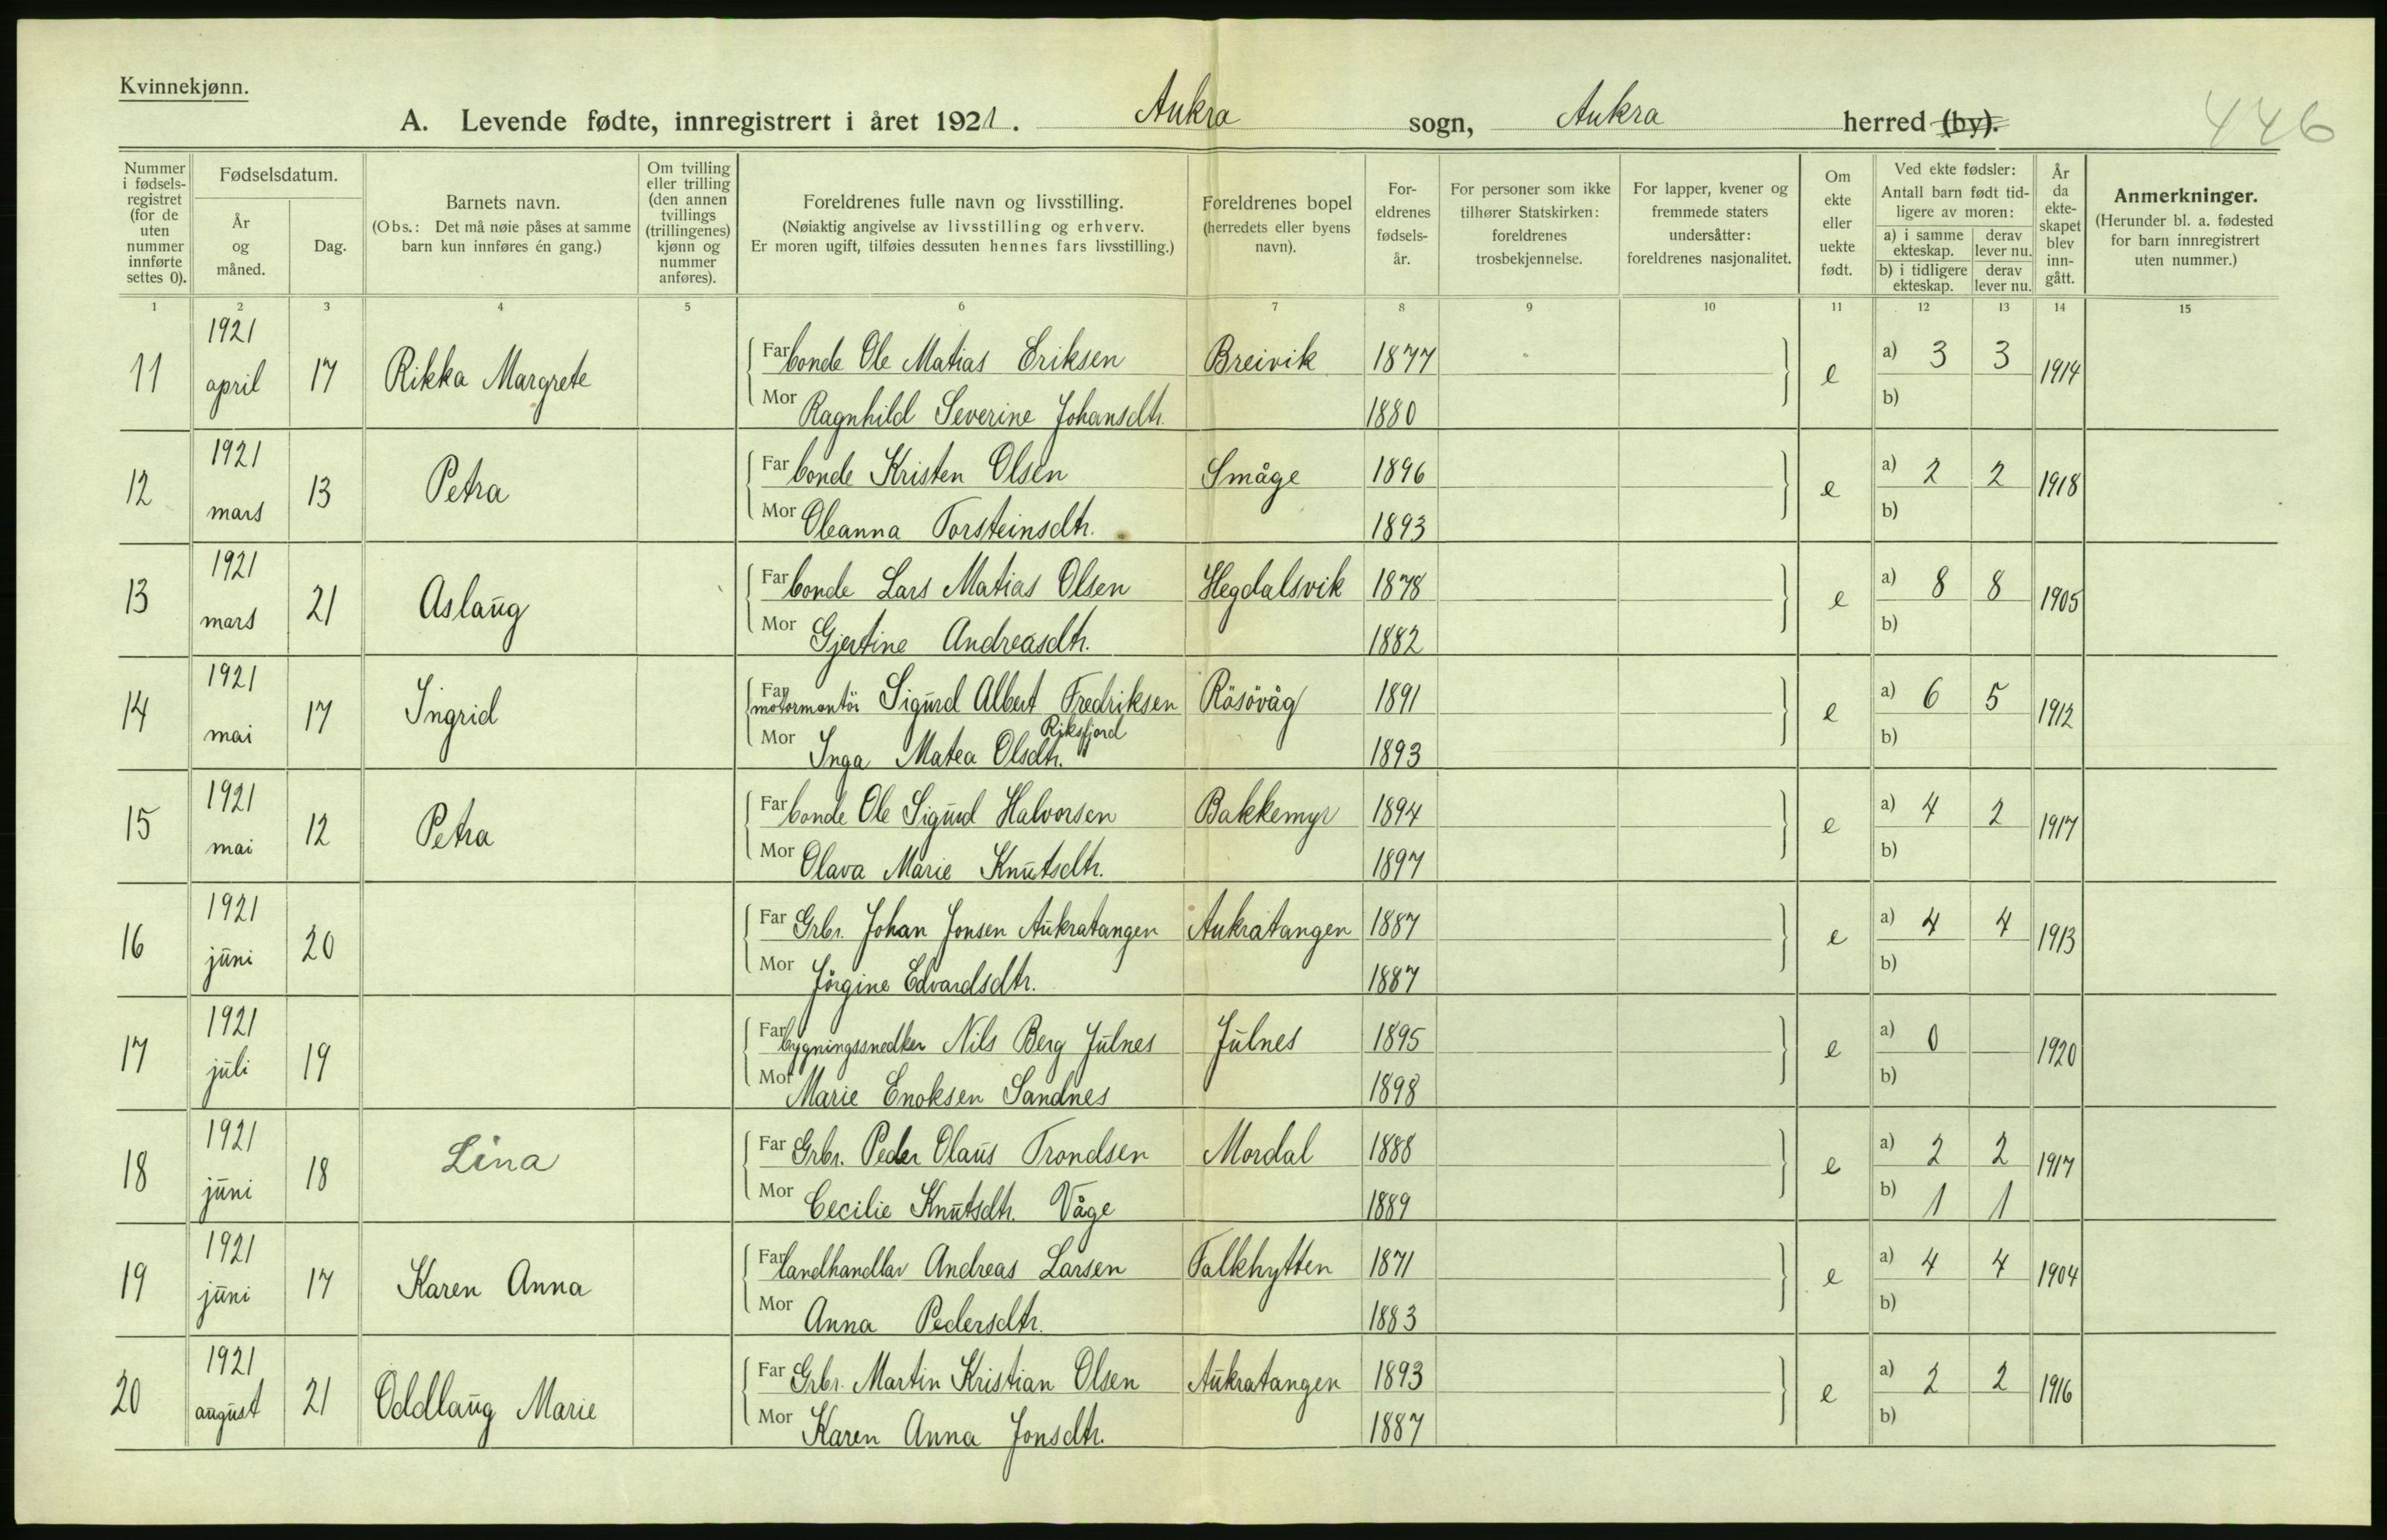 Kvinnekjønn.
A. Levende fødte, innregistrert i året 1921. Aukra sogn, Aukra herred (by).
446
Nummer i fødsels-registret (for de uten nummer innførte settes 0).
Fødselsdatum.
År og måned.
Dag.
Barnets navn.
(Obs.: Det må nøie påses at samme barn kun innføres én gang.)
Om tvilling eller trilling (den annen tvillings (trillingenes) kjønn og nummer anføres).
Foreldrenes fulle navn og livsstilling.
(Nøiaktig angivelse av livsstilling og erhverv.
Er moren ugift, tilføies dessuten hennes fars livsstilling.)
Foreldrenes bopel (herredets eller byens navn).
For-eldrenes fødsels-år.
For personer som ikke tilhører Statskirken: foreldrenes trosbekjennelse.
For lapper, kvener og fremmede staters undersåtter: foreldrenes nasjonalitet.
Om ekte eller uekte født.
Ved ekte fødsler:
Antall barn født tid-ligere av moren:
a) i samme ekteskap. derav lever nu.
b) i tidligere ekteskap. derav lever nu.
År da ekte-skapet blev inn-gått.
Anmerkninger.
(Herunder bl. a. fødested for barn innregistrert uten nummer.)
1 2 3 4 5 6 7 8 9 10 11 12 13 14 15
11 1921 april 17 Rikka Margrete Far bonde Ole Matias Eriksen Breivik 1877 e a) 3 3 1914
Mor Ragnhild Severine Johansdtr. 1880 b)
12 1921 mars 13 Petra Far bonde Kristen Olsen Småge 1896 e a) 2 2 1918
Mor Oleanna Torsteinsdtr. 1893 b)
13 1921 mars 21 Aslaug Far bonde Lars Matias Olsen Hegdalsvik 1878 e a) 8 8 1905
Mor Gjertine Andreasdtr. 1882 b)
14 1921 mai 17 Ingrid Far motormontör Sigurd Albert Fredriksen Riksfjord Rösövåg 1891 e a) 6 5 1912
Mor Inga Matea Olsdtr. 1893 b)
15 1921 mai 12 Petra Far bonde Ole Sigurd Halvorsen Bakkemyr 1894 e a) 4 2 1917
Mor Olava Marie Knutsdtr. 1897 b)
16 1921 juni 20 Far Grbr. Johan Jonsen Aukratangen Aukratangen 1887 e a) 4 4 1913
Mor Jörgine Edvardsdtr. 1887 b)
17 1921 juli 19 Far bygningssnedker Nils Berg Julnes Julnes 1895 e a) 0 1920
Mor Marie Enoksen Sandnes 1898 b)
18 1921 juni 18 Lina Far Grbr. Peder Olaus Trondsen Mordal 1888 e a) 2 2 1917
Mor Cecilie Knutsdtr. Våge 1889 b) 1 1
19 1921 juni 17 Karen Anna Far landhandlar Andreas Larsen Falkhytten 1871 e a) 4 4 1904
Mor Anna Pedersdtr. 1883 b)
20 1921 august 21 Oddlaug Marie Far Grbr. Martin Kristian Olsen Aukratangen 1893 e a) 2 2 1916
Mor Karen Anna Jonsdtr. 1887 b)